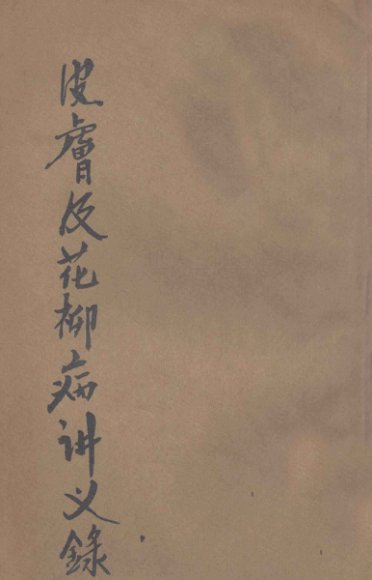 皮膚及花柳病讲义錄